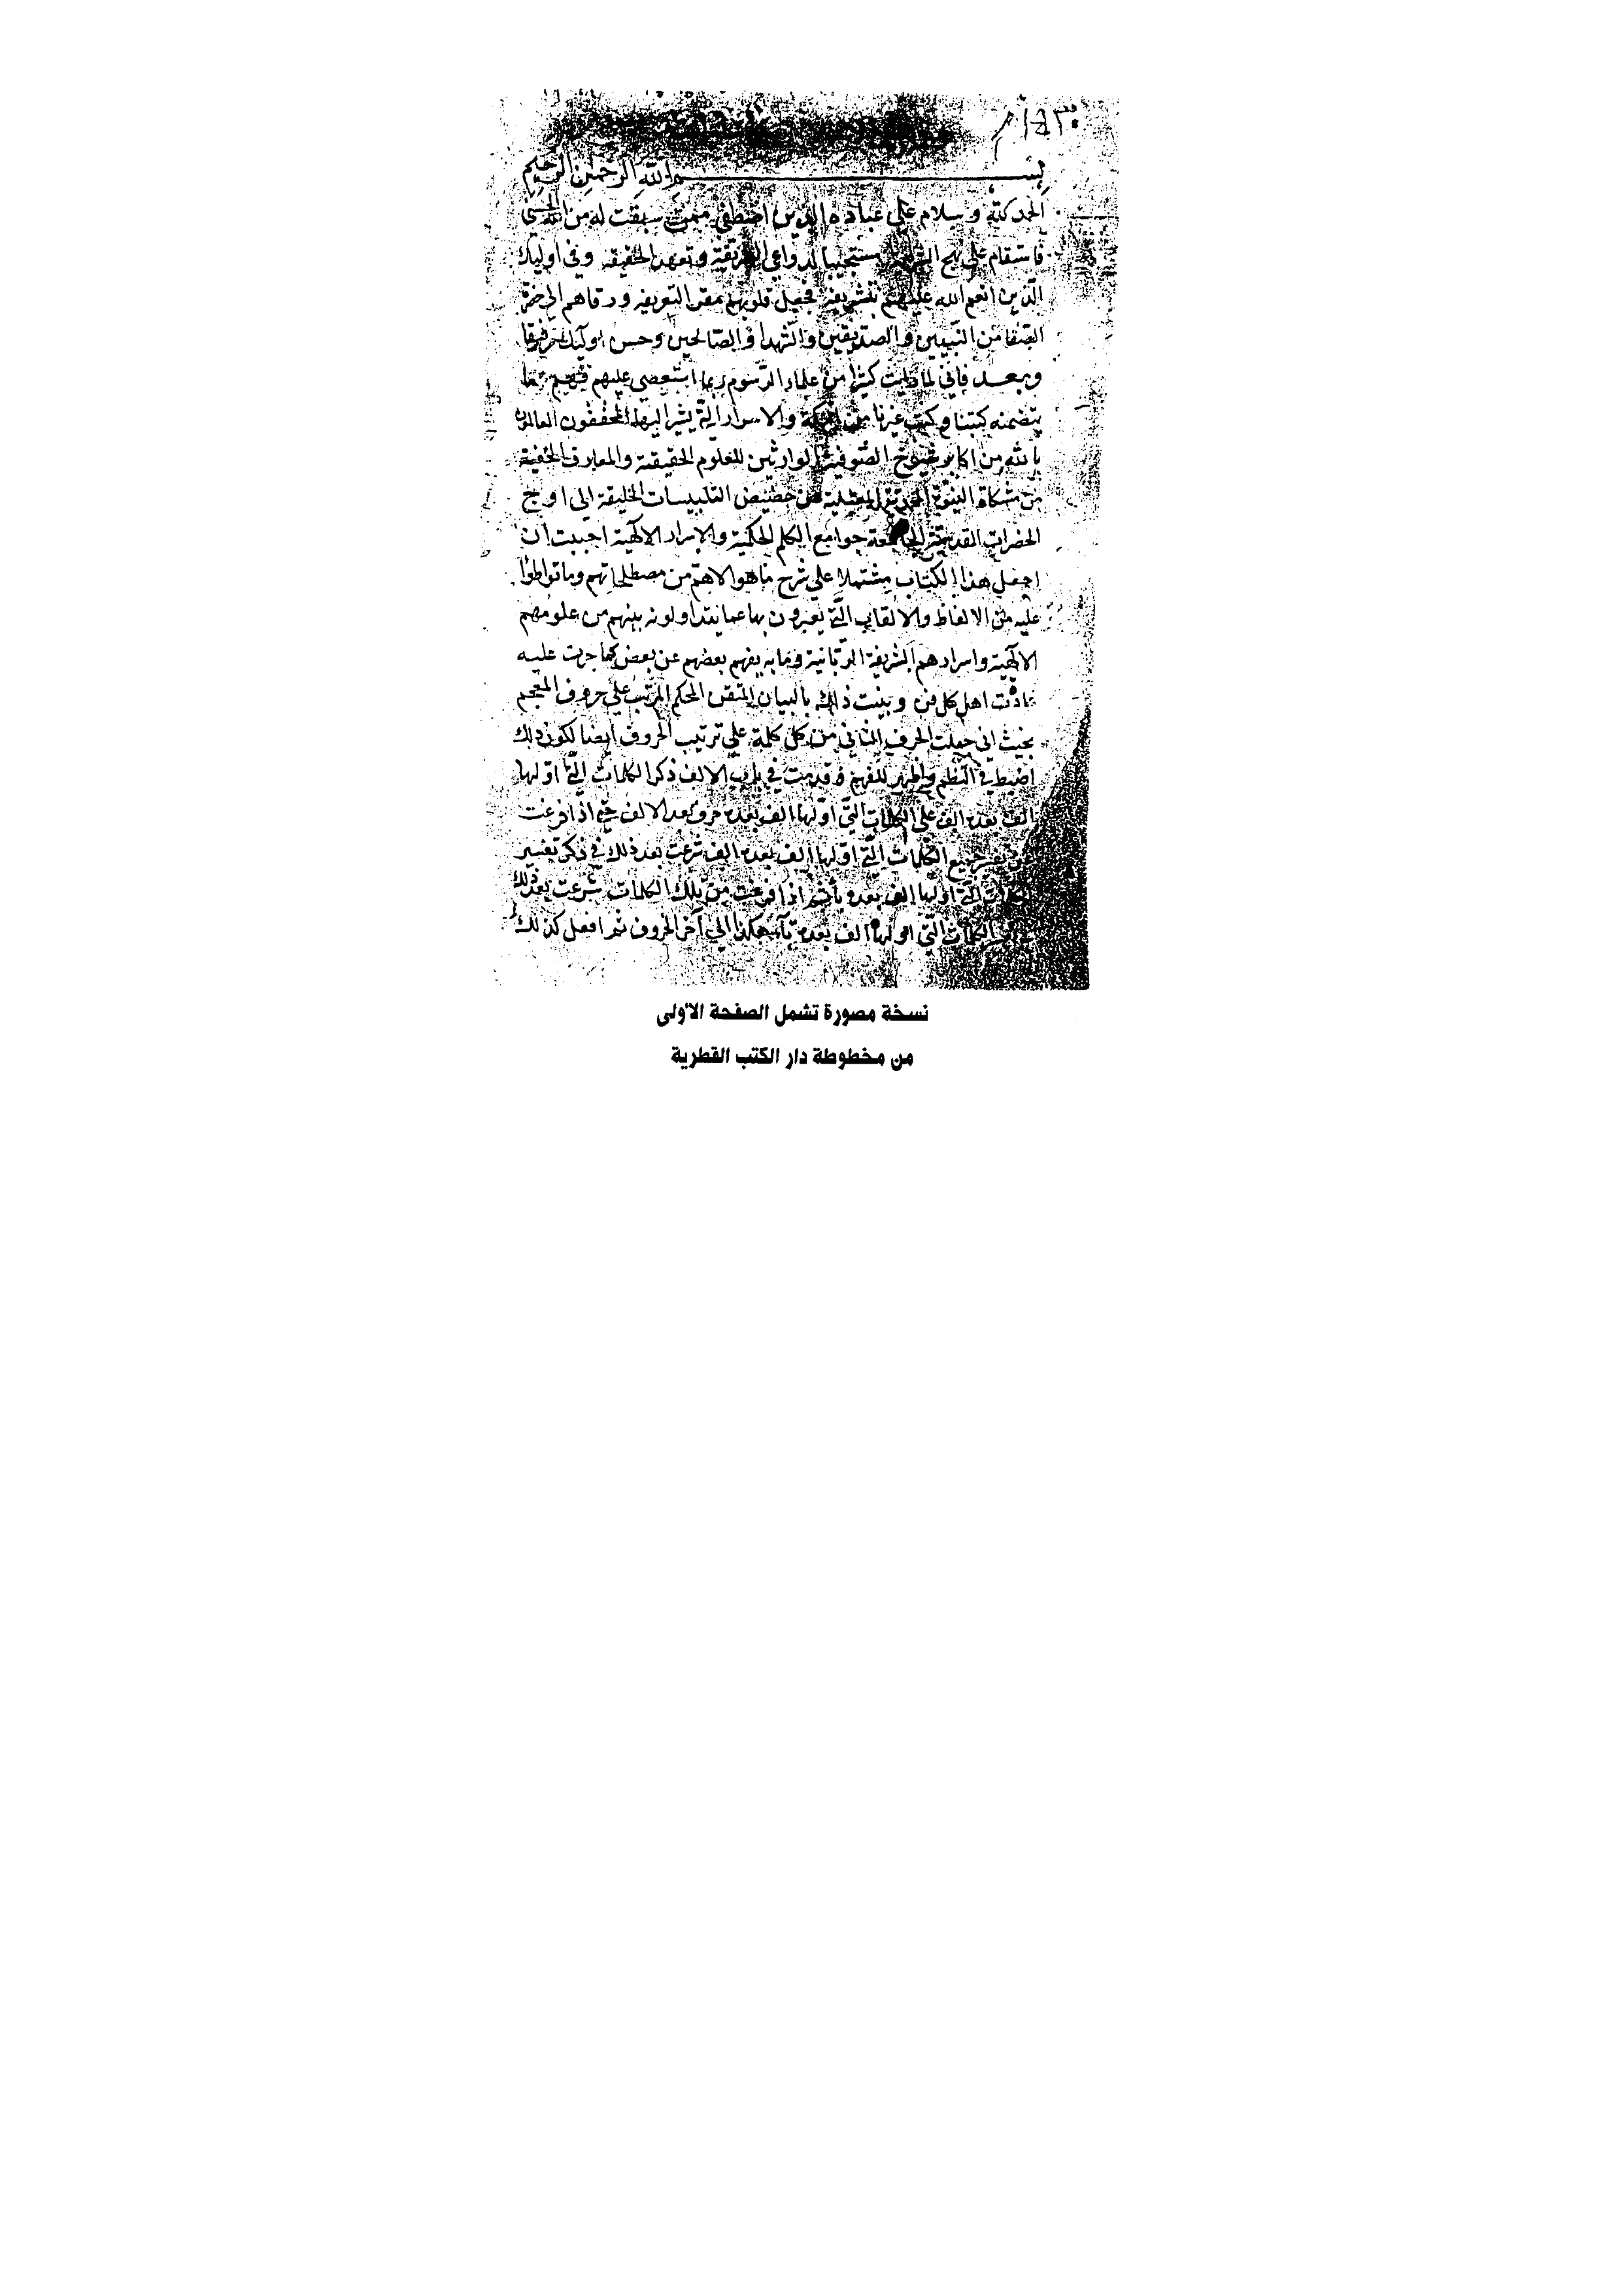 بسم الله الرحمن الرحيم
الحمد لله وسلام على عباده الذين اصطفى ممن سبقت له من الله الحسنى
فاستقام على نهج مستجيبا لدواعي الطريقة وتعهد الحقيقه وفى اوليك
الذين انعم الله عليهم بتشريفه فجعل قلوبهم مقر التعريفه ورقاهم الى حضرة
الصفا من النبيين والصديقين والشهدا والصالحين وحسن اوليك رفيقا
وبعد فانى لما رايت كثيرا من علماء الرسوم ربما استعصى عليهم فهم ما
يتضمنه كتبنا وكتب غيرنا من والاسرار التي يشير اليها المحققون العالمون
بالله من اكابر شيوخ الصوفية الوارثين للعلوم الحقيقية والمعارف الخفية
من مشكاة النبوة المحمدية المعتلية من حضيض التلبيسات الخليقة الى اوج
الحضرات القدسية الجامعة جوامع الكلم الحكمية والاسرار الالهية احببت ان
اجعل هذا الكتاب مشتملا على شرح ما هو الاهم من مصطلحاتهم وما تواطوا
عليه من الالفاظ والالقاب التي يعبرون بها عما يتداولونه بينهم من علومهم
الالهية واسرارهم الشريفة الربانية وما به يفهم بعضهم عن بعض كما جرت عليه
عادت اهل كل فن وبينت ذلك بالبيان المتقن المحكم المرتب على حروف المعجم
بحيث انى جعلت الحرف الثانى من كل كلمة على ترتيب الحروف ايضا لكون ذلك
اضبط في النظم واظهر للفهم وقدمت في باب الالف ذكر الكلمات التي اولها
الف بعده الف على الكلمات التي اولها الف بعده حرف بعد الالف حتى اذا فرغت
جميع الكلمات التي اولها الف بعده الف شرعت بعد ذلك في ذكر تفسير
التي اولها الف بعده باء ثم اذا فرغت من تلك الكلمات شرعت بعد ذلك
الكلمات التي اولها الف بعده تاء هكذا الى آخر الحروف ثم افعل كذلك
نسخة مصورة تشمل الصفحة الأولى
من مخطوطة دار الكتب القطرية